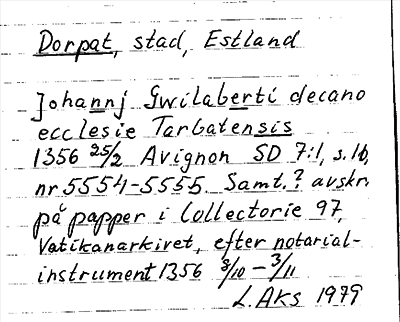 Dorpat, stad, Estland
Johannj Gwilaberti decano
ecclesie Tarbatensis
1356 25/2 Avignon SD 7:1, s.16,
nr 5554-5555. Samt.? avskr.
på papper i Collectorie 97,
Vatikanarkivet, efter notarial-
instrument 1356 3/10 - 3/11
L. Aks 1979